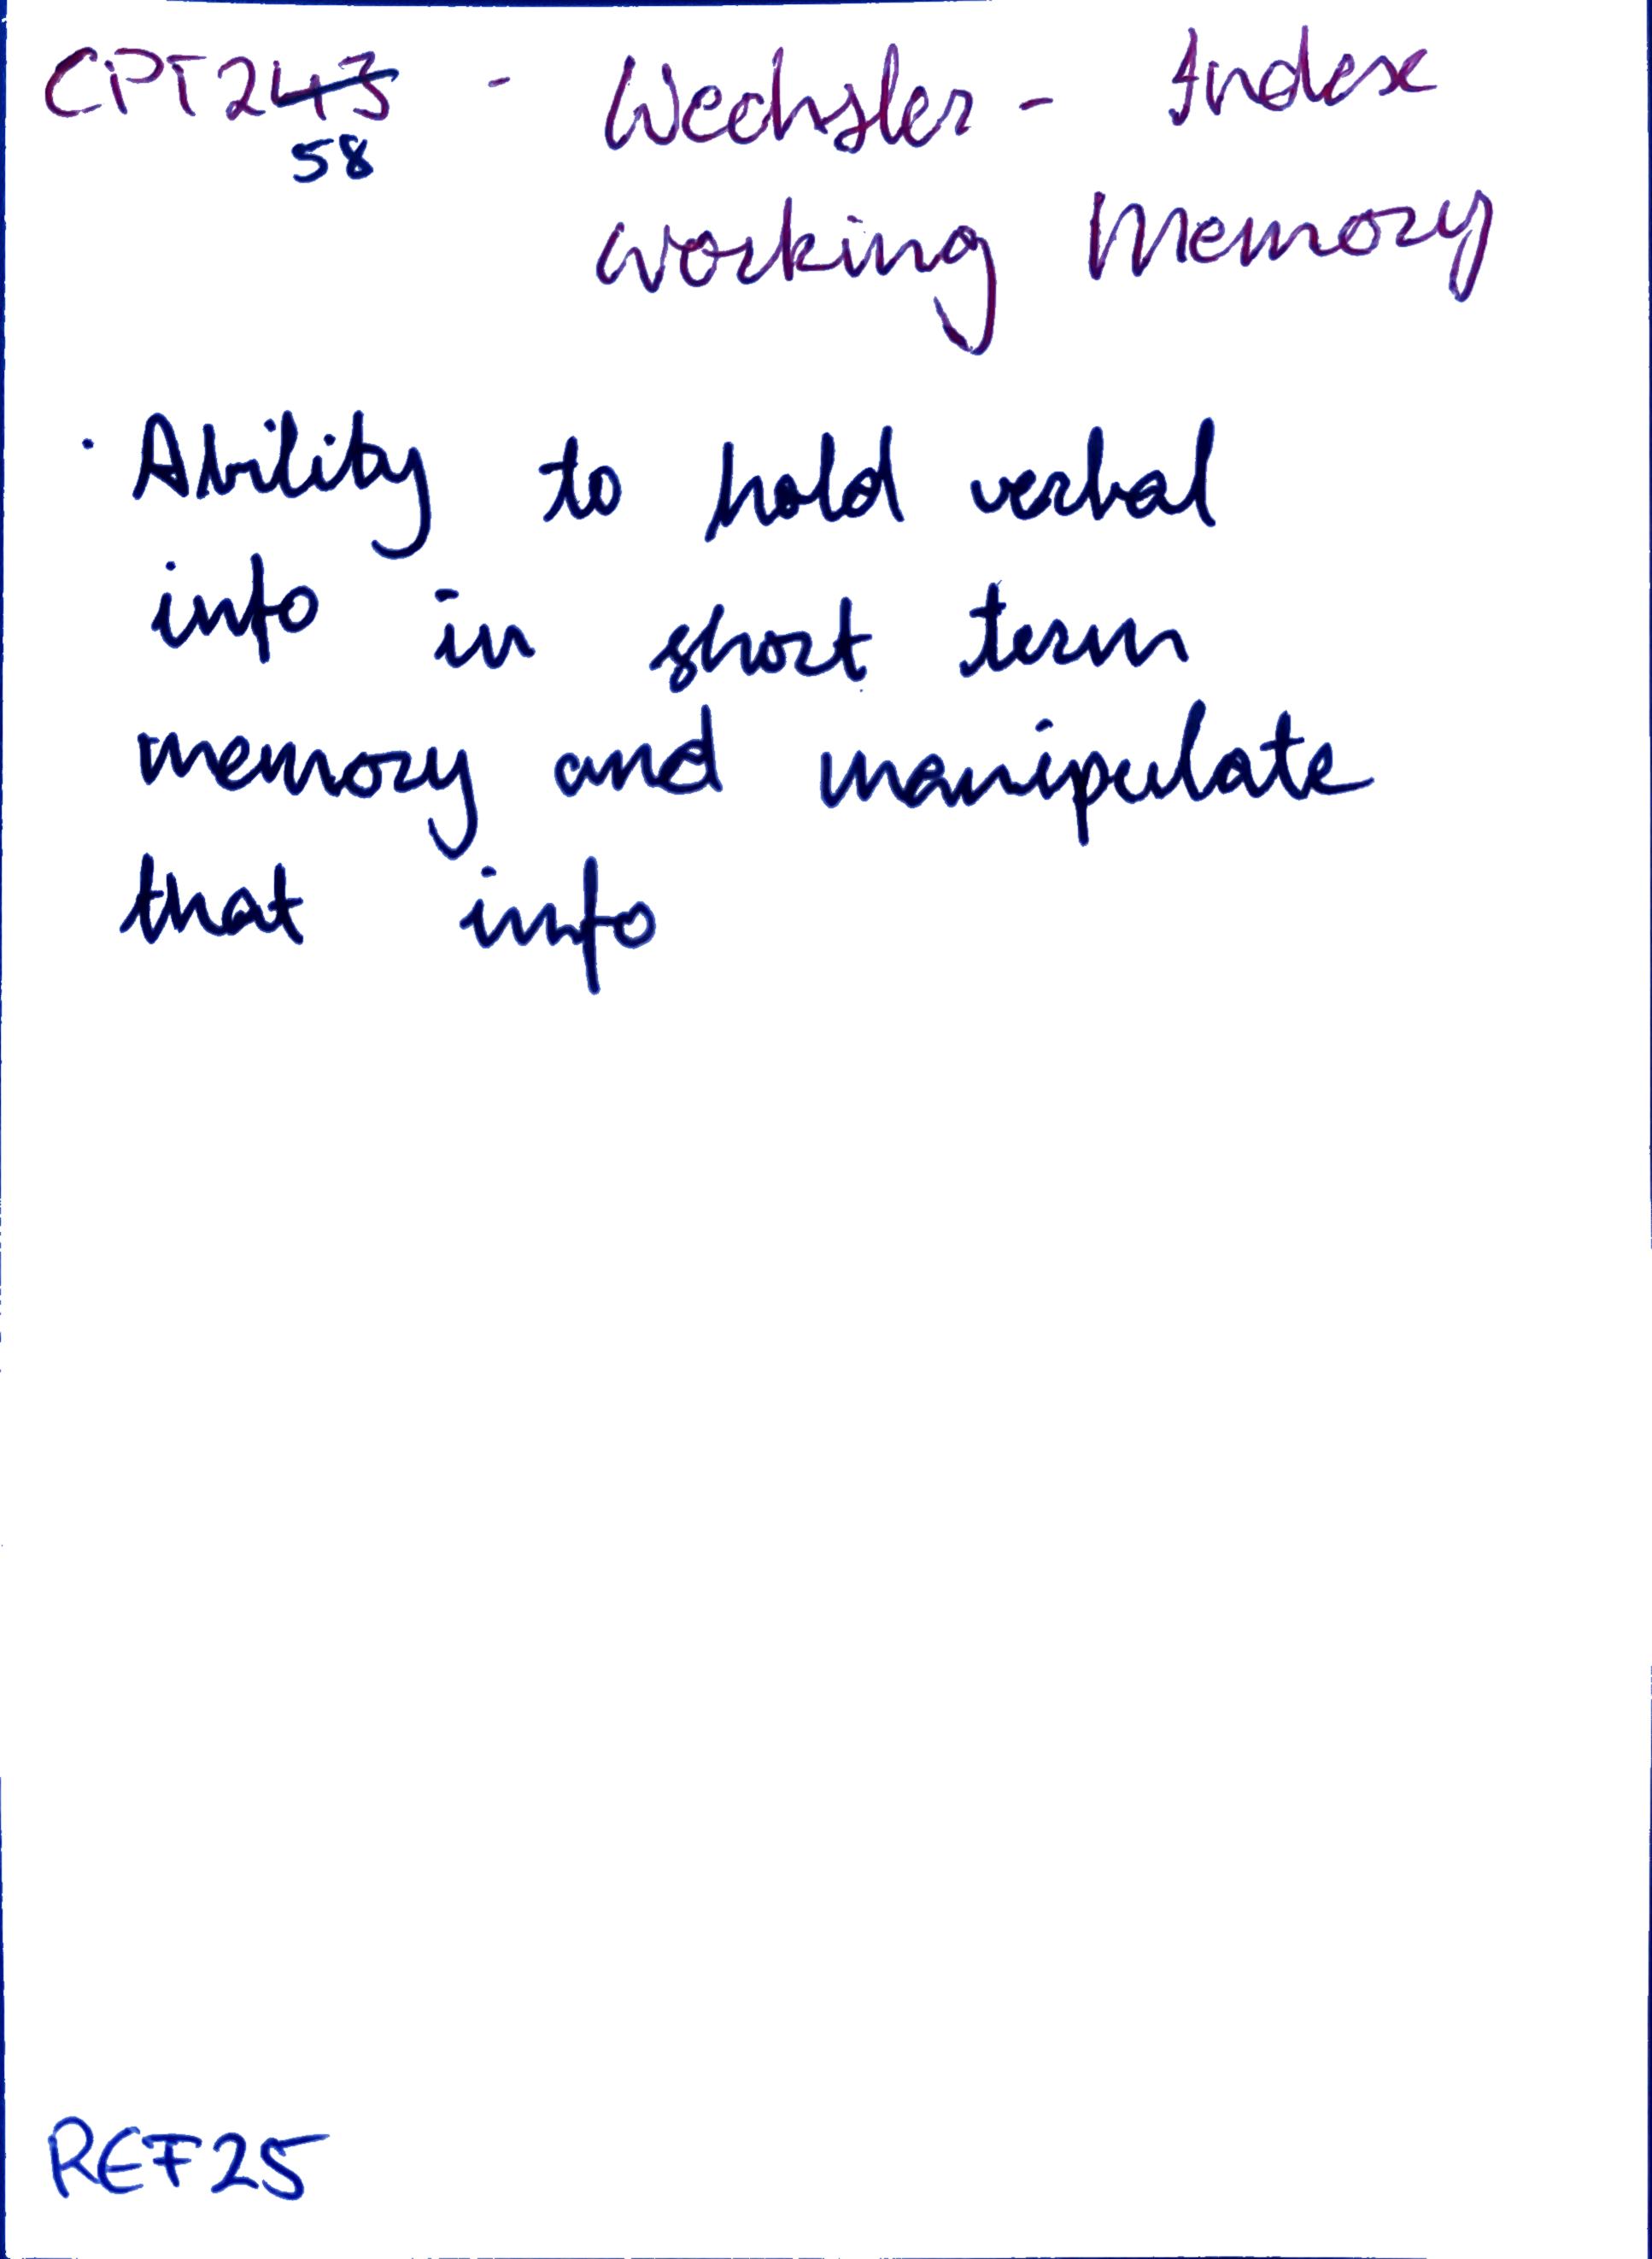 CPT243 - Wechsler - Index
58
Working Memory
· Ability to hold verbal
info in short term
memory and manipulate
that info
REF25